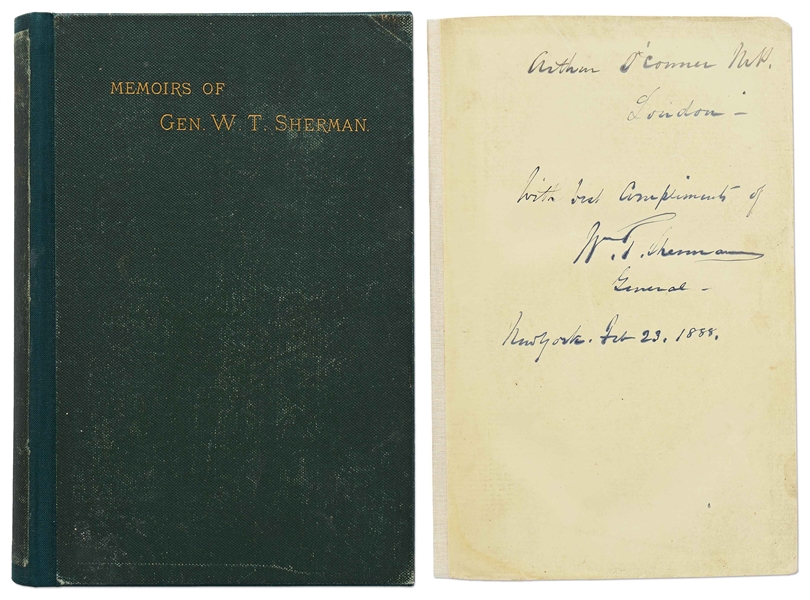 MEMOIRS OF
GEN. W. T. SHERMAN.
Arthur O'Conner M.P.
London -
With best Compliments of
Wm. T. Sherman
General -
New York. Feb 23. 1888.